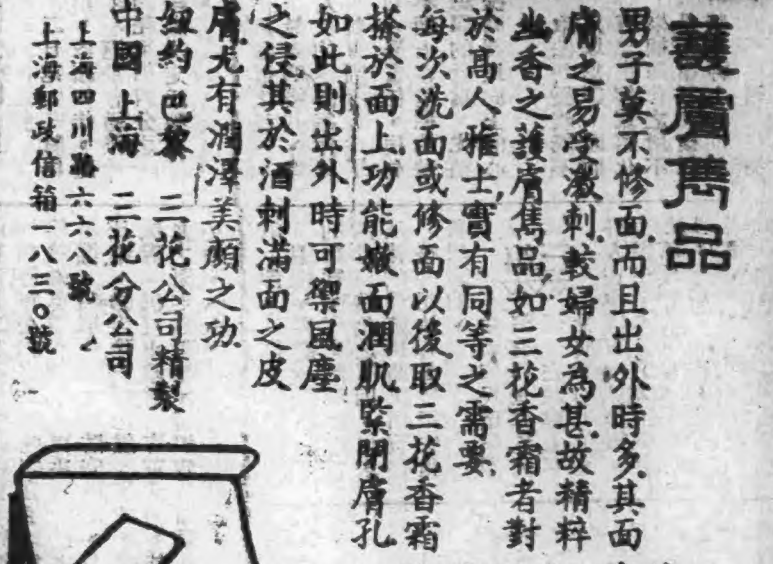 護膚雋品
男子莫不修面.而且出外時多.其面
膚之易受激刺.較婦女為甚.故精粹
幽香之護膚雋品.如三花香霜者對
於高人雅士.實有同等之需要.
每次洗面或修面以後取三花香霜
搽於面上.功能嫩面潤肌緊閉膚孔
如此則出外時可禦風塵
之侵其於酒刺滿面之皮
膚.尤有潤澤美顏之功.
紐約 巴黎 三花公司精製
中國 上海 三花分公司
上海四川路六六八號
上海郵政信箱一八三〇號